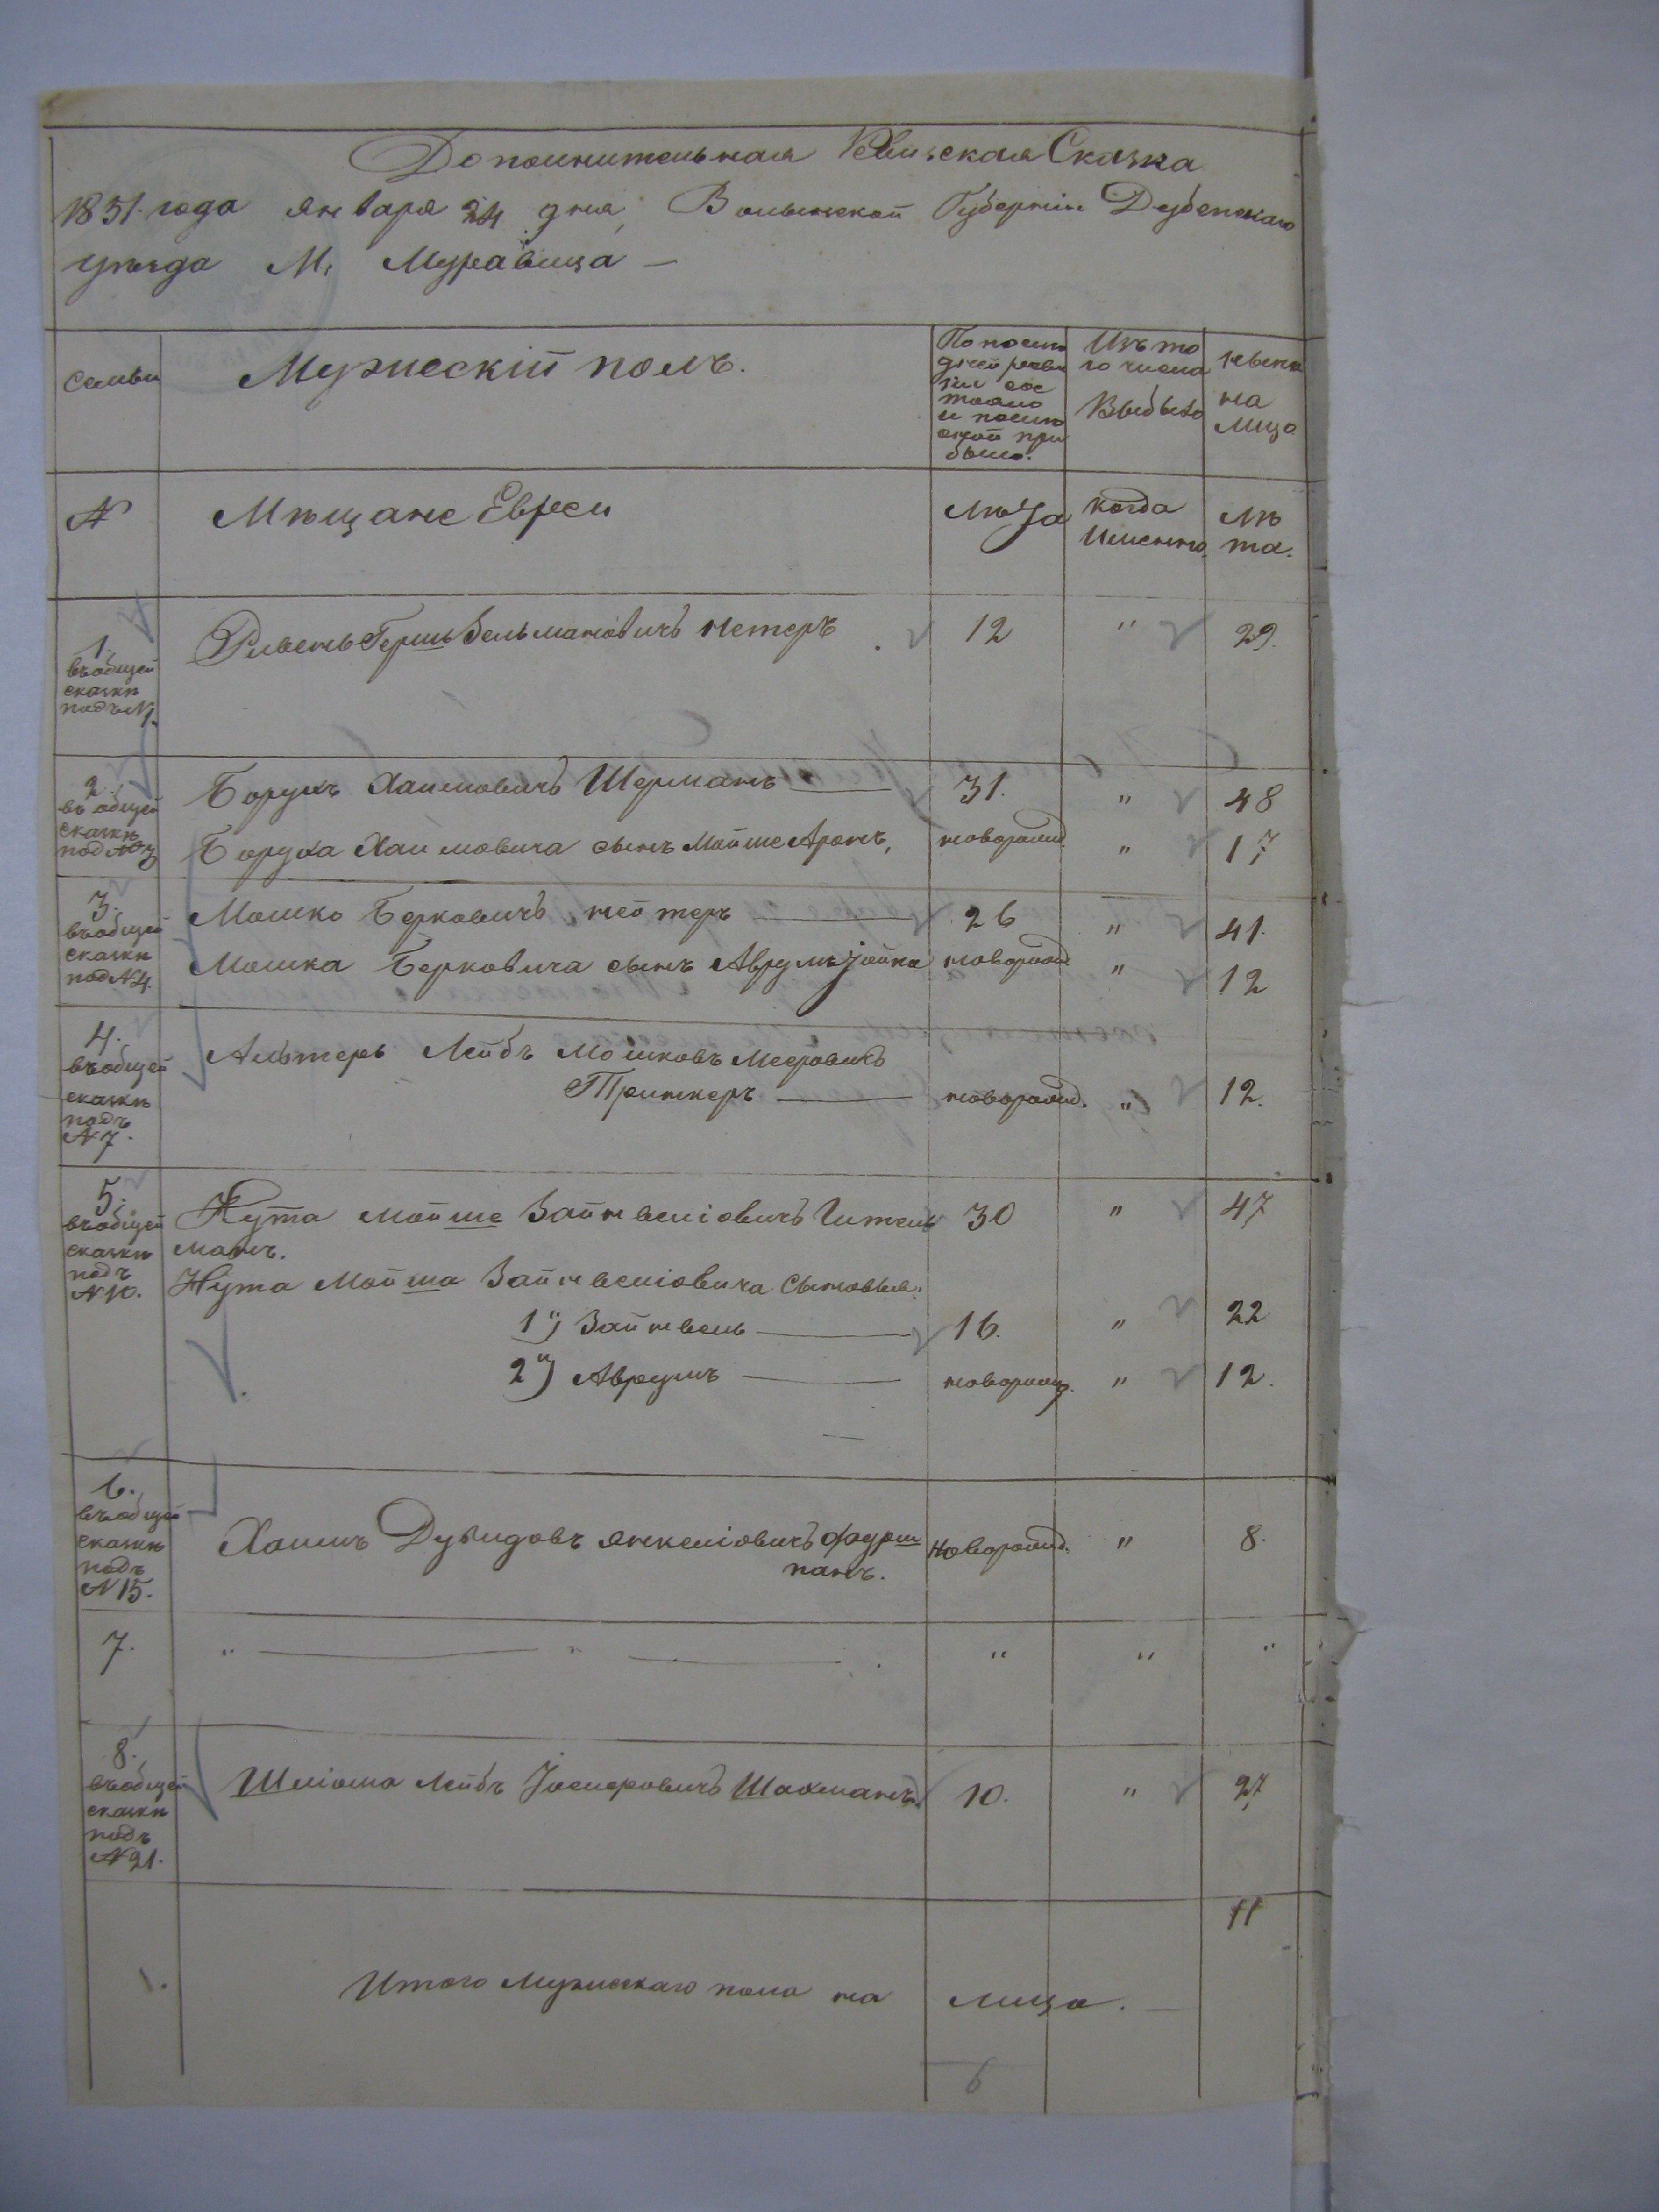 Дополнительная Ревизская Сказка
1851 года января 24 дня, Волынской Губернии Дубенскаго
уѣзда М. Муравица —
Семьи
Мужескій полъ.
По послѣ
дней реви
зіи сос
тояло
и послѣ
оной при
было.
Изъ то
го числа
Выбыло
нынѣ
на
лицо
№
Мѣщане Евреи
Лѣта
когда
Именно.
Лѣ
та.
1.
въ общей
сказкѣ
подъ № 1.
Рывенъ Гершъ Зельмановичъ
12
"
29.
2.
въ общей
сказкѣ
под № 3
Борухъ Хаимовичъ Шерманъ
31.
"
48
Боруха Хаимовича сынъ Мойше Аронъ,
новорожд.
"
17
3.
въ общей
сказкѣ
под № 4.
Мошко Берковичъ
26
"
41.
Мошка Берковича сынъ Аврумъ
новорожд
"
12
4.
въ общей
сказкѣ
подъ
№ 7.
Альтеръ Лейбъ Мошковъ Мееровичъ
Тринкеръ
новорожд.
"
12.
5.
въ общей
сказкѣ
подъ
№ 10.
Нута Мойше Зайнвеліовичъ Гитель
манъ.
30
"
47
Нута Мойша Зайнвеліовича Сыновья:
1") Зайнвель
16.
"
22
2") Аврумъ
новорожд.
"
12.
6.
въ общей
сказкѣ
подъ
№ 15.
Хаимъ Дувидовъ Янкеліовичъ
новорожд.
"
8.
7.
"
"
"
"
"
8.
въ общей
сказкѣ
подъ
№ 21.
Шліома Лейбъ Іосифовичъ Шахманъ
10.
"
27
11
Итого Мужескаго пола на лицо.